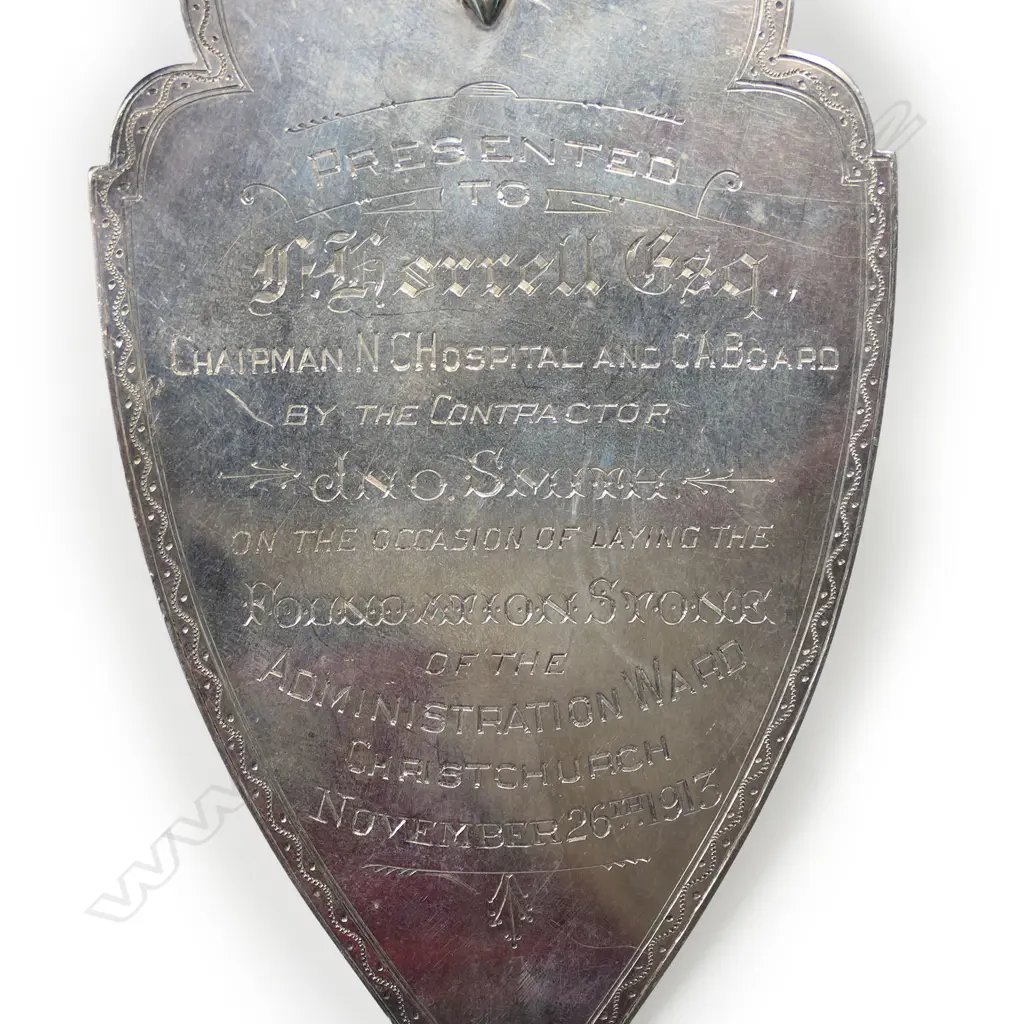 PRESENTED
TO
F. Horrell Esq.,
CHAIRMAN N C HOSPITAL AND C A BOARD
BY THE CONTRACTOR
JNO. SMITH
ON THE OCCASION OF LAYING THE
FOUNDATION STONE
OF THE
ADMINISTRATION WARD
CHRISTCHURCH
NOVEMBER 26TH 1913